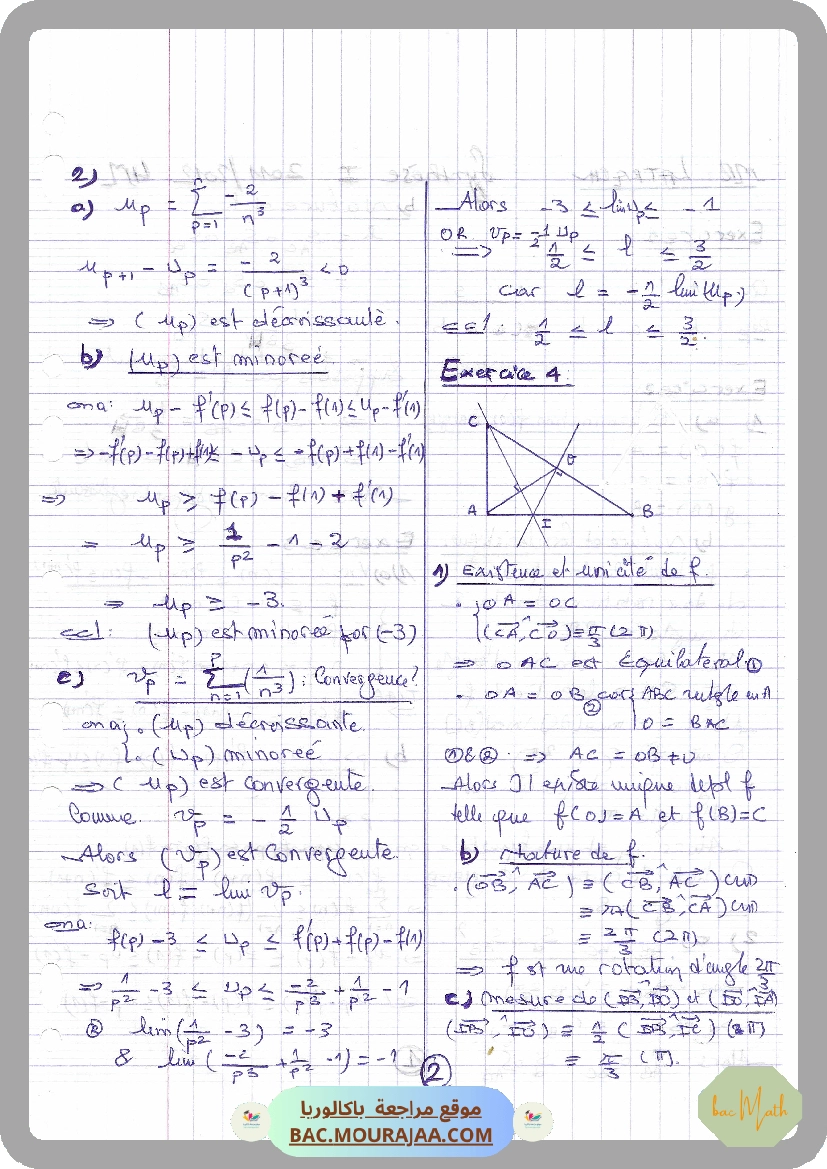 2)
a) u_p = Σ_{p=1}^{n} -2/n³
u_{p+1} - u_p = -2/(p+1)³ < 0
⇒ (u_p) est décroissante.
b) (u_p) est minoreé
ona: u_p - f'(p) ≤ f(p) - f(1) ≤ u_p - f'(1)
⇒ -f'(p) - f(p) + f(1) ≤ -u_p ≤ -f(p) + f(1) - f'(1)
⇒ u_p ≥ f(p) - f(1) + f'(1)
= u_p ≥ 1/p² - 1 - 2
⇒ u_p ≥ -3.
ccl: (u_p) est minoreé por (-3)
c) v_p = Σ_{n=1}^{p} (1/n³) : Convergence?
ona: . (u_p) décroissante.
. (u_p) minoreé
⇒ (u_p) est convergente.
Comme v_p = -1/2 u_p
Alors (v_p) est Convergente.
Soit l = lim v_p.
ona:
f(p) - 3 ≤ u_p ≤ f'(p) + f(p) - f(1)
⇒ 1/p² - 3 ≤ u_p ≤ -2/p³ + 1/p² - 1
lim(1/p² - 3) = -3
& lim(-2/p³ + 1/p² - 1) = -1
Alors -3 ≤ lim u_p ≤ -1
OR v_p = -1/2 u_p
⇒ 1/2 ≤ l ≤ 3/2
car l = -1/2 lim(u_p.)
ccl: 1/2 ≤ l ≤ 3/2.
Exercice 4
C
O
A
I
B
1) Existence et unicité de f.
. OA = OC
(CA, CO) ≡ π/3 (2π)
⇒ OAC est Equilateral ①
. OA = OB ② car ABC rectgle en A
O = B*C
① & ② ⇒ AC = OB ≠ 0
Alors Il existe unique depl f
telle que f(O) = A et f(B) = C
b) Nature de f.
. (OB, AC) ≡ (CB, AC) (2π)
≡ π + (CB, CA) (2π)
≡ 2π/3 (2π)
⇒ f est une rotation d'angle 2π/3
c) mesure de (IB, IO) et (IO, IA)
(IB, IO) ≡ 1/2 (IB, IC) (2π)
≡ π/3 (π).
2
موقع مراجعة باكالوريا
BAC.MOURAJAA.COM
bacMath